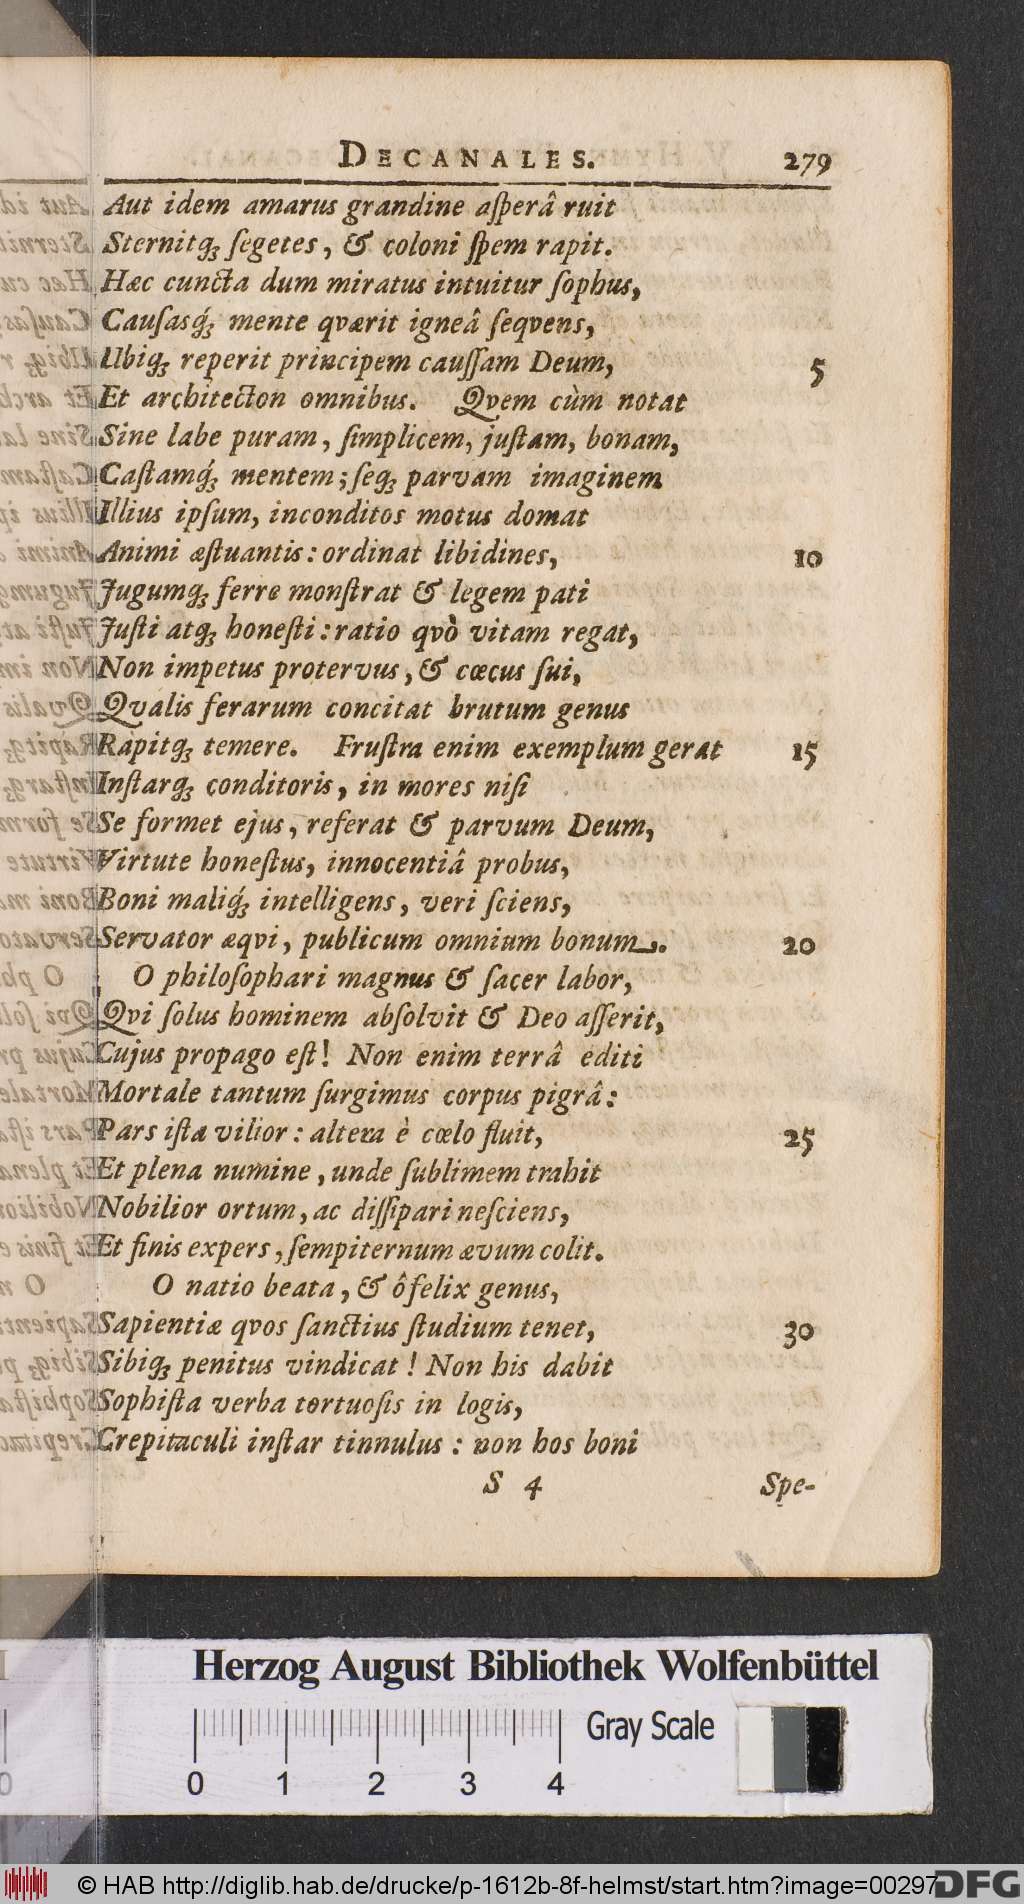 DECANALES. 279
Aut idem amarus grandine aſperâ ruit
Sternitq́; ſegetes, & coloni ſpem rapit.
Hæc cuncta dum miratus intuitur ſophus,
Cauſasq́; mente qværit igneâ ſeqvens,
Ubiq; reperit principem cauſſam Deum, 5
Et architecton omnibus. Qvem cùm notat
Sine labe puram, ſimplicem, juſtam, bonam,
Caſtamq́; mentem; ſeq; parvam imaginem
Illius ipſum, inconditos motus domat
Animi æſtuantis: ordinat libidines, 10
Jugumq; ferre monſtrat & legem pati
Juſti atq; honeſti: ratio qvò vitam regat,
Non impetus protervus, & cœcus ſui,
Qvalis ferarum concitat brutum genus
Rapitq; temere. Fruſtra enim exemplum gerat 15
Inſtarq; conditoris, in mores niſi
Se formet ejus, referat & parvum Deum,
Virtute honeſtus, innocentiâ probus,
Boni maliq́; intelligens, veri ſciens,
Servator æqvi, publicum omnium bonum. 20
O philoſophari magnus & ſacer labor,
Qvi ſolus hominem abſolvit & Deo aſſerit,
Cujus propago eſt! Non enim terrâ editi
Mortale tantum ſurgimus corpus pigrâ:
Pars iſta vilior: altera è cœlo fluit, 25
Et plena numine, unde ſublimem trahit
Nobilior ortum, ac diſſipari neſciens,
Et finis expers, ſempiternum ævum colit.
O natio beata, & ô felix genus,
Sapientiæ qvos ſanctius ſtudium tenet, 30
Sibiq; penitus vindicat! Non his dabit
Sophiſta verba tortuoſis in logis,
Crepitaculi inſtar tinnulus: non hos boni
S 4 Spe-
Herzog August Bibliothek Wolfenbüttel
Gray Scale
0 1 2 3 4
© HAB http://diglib.hab.de/drucke/p-1612b-8f-helmst/start.htm?image=00297
DFG